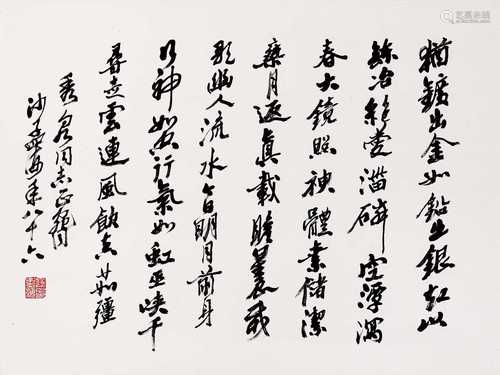 猶鑛出金如鉛出銀超心
鍊冶絕愛淄磷空潭瀉
春古鏡照神體素儲潔
乘月返真載瞻星辰載
歌幽人流水今日明月前身
行神如空行氣如虹巫峽千
尋走雲連風飲真茹彊
秀泉同志正腕
沙孟海年八十六